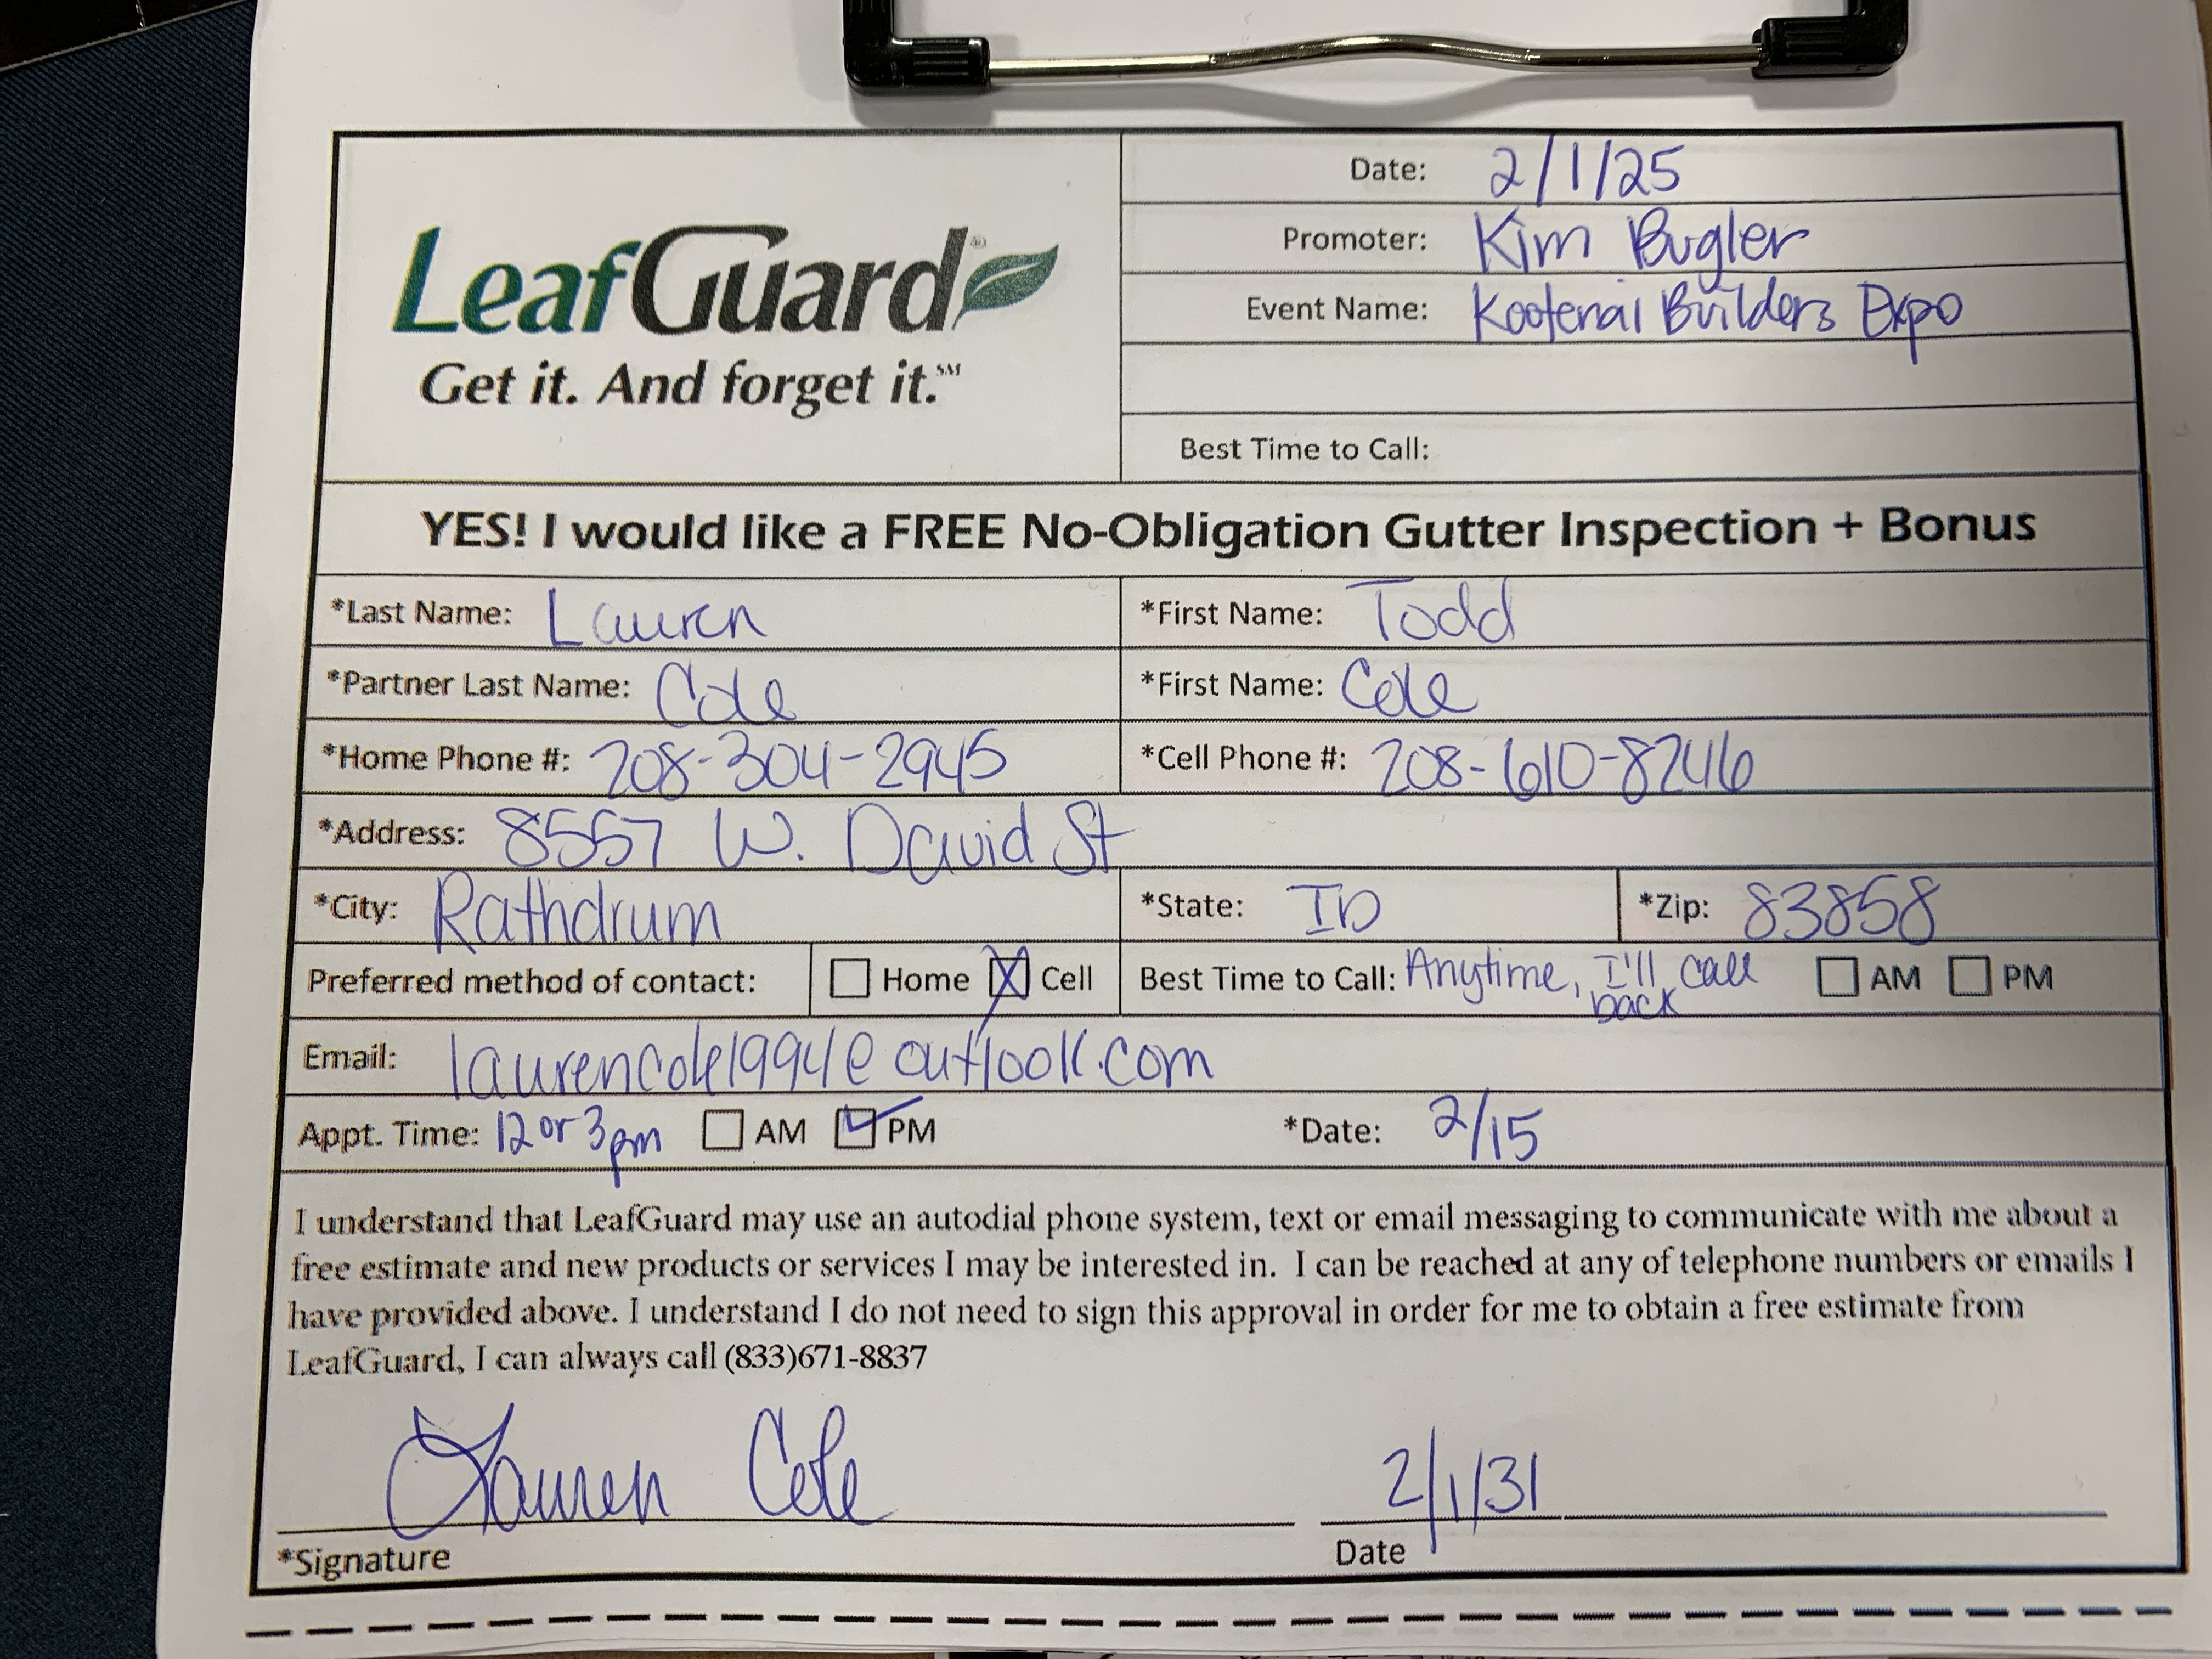 LeafGuard®
Get it. And forget it.℠
Date: 2/1/25
Promoter: Kim Bugler
Event Name: Kootenai Builders Expo
Best Time to Call:
YES! I would like a FREE No-Obligation Gutter Inspection + Bonus
*Last Name: Lauren *First Name: Todd
*Partner Last Name: Cole *First Name: Cole
*Home Phone #: 208-304-2945 *Cell Phone #: 208-610-8246
*Address: 8557 W. David St
*City: Rathdrum *State: ID *Zip: 83858
Preferred method of contact: ☐ Home ☒ Cell Best Time to Call: Anytime, I'll call back ☐ AM ☐ PM
Email: laurencole1994@outlook.com
Appt. Time: 12 or 3pm ☐ AM ☑ PM *Date: 2/15
I understand that LeafGuard may use an autodial phone system, text or email messaging to communicate with me about a
free estimate and new products or services I may be interested in. I can be reached at any of telephone numbers or emails I
have provided above. I understand I do not need to sign this approval in order for me to obtain a free estimate from
LeafGuard, I can always call (833)671-8837
Lauren Cole 2/1/31
*Signature Date